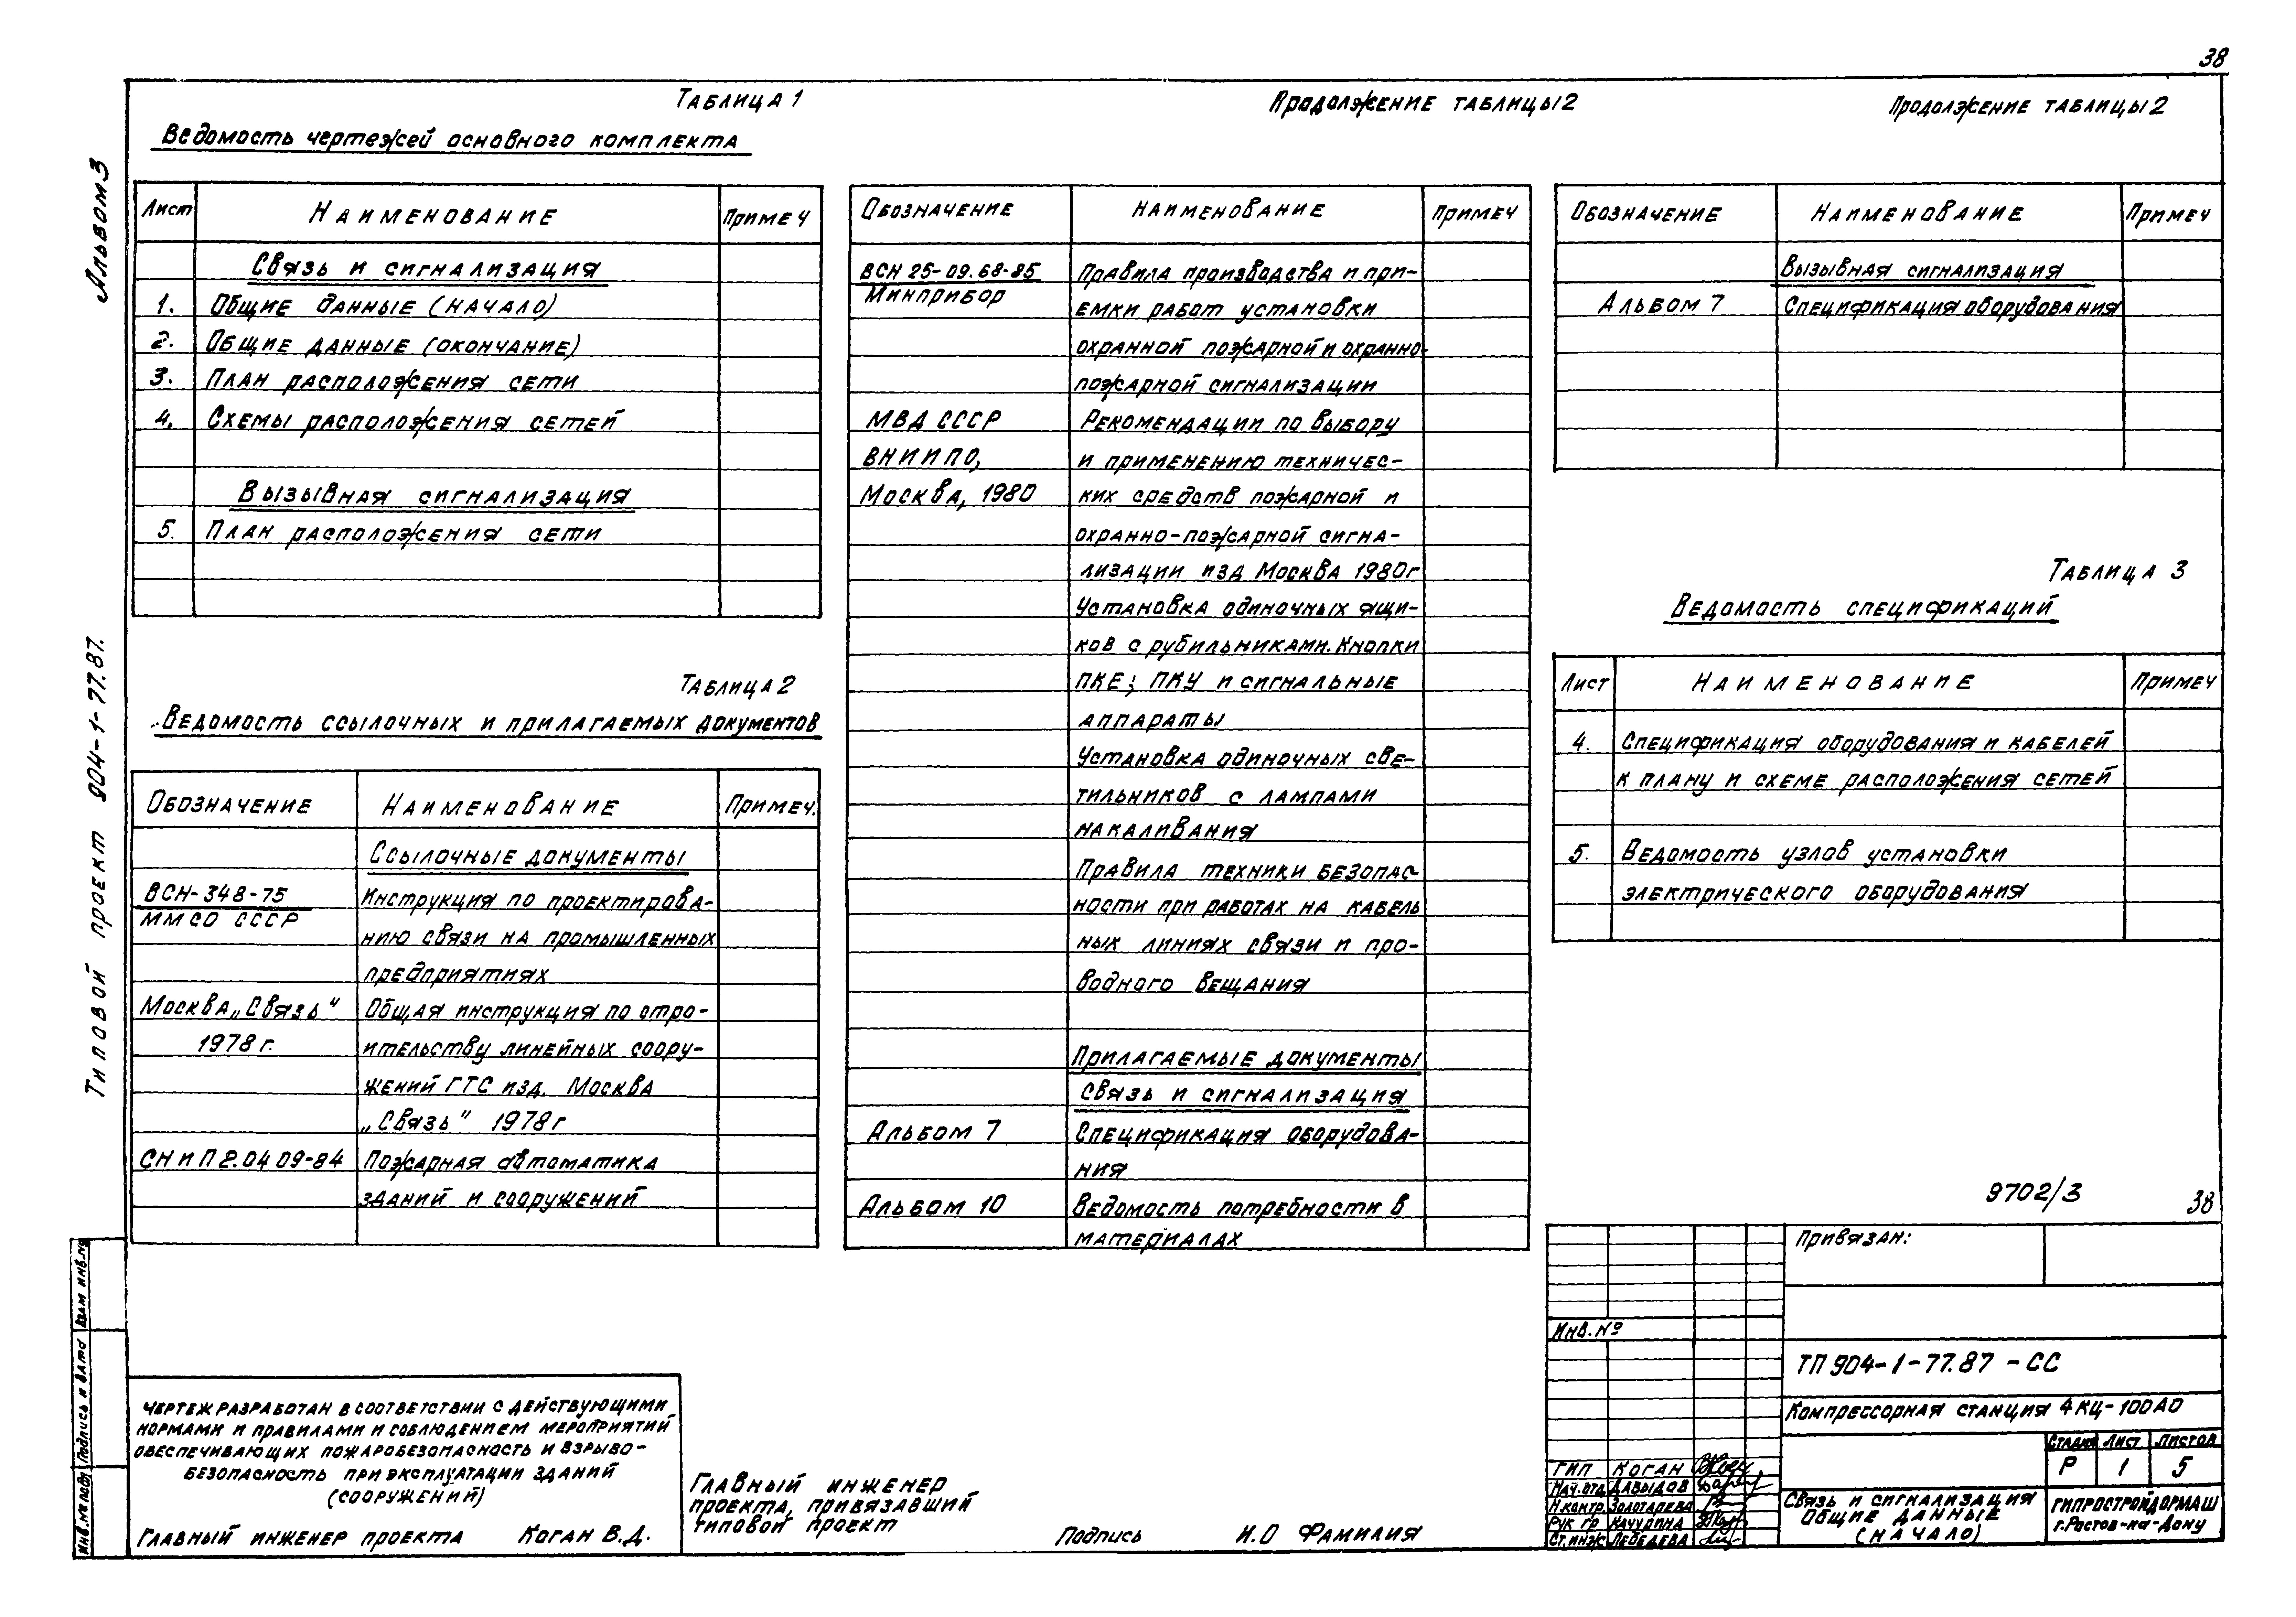 38
Альбом 3
Типовой проект 904-1-77.87.
Таблица 1
Ведомость чертежей основного комплекта
Лист Наименование Примеч
Связь и сигнализация
1. Общие данные (начало)
2. Общие данные (окончание)
3. План расположения сети
4. Схемы расположения сетей
Вызывная сигнализация
5. План расположения сети
Таблица 2
Ведомость ссылочных и прилагаемых документов
Обозначение Наименование Примеч.
Ссылочные документы
ВСН-348-75 Инструкция по проектирова-
ММСО СССР
нию связи на промышленных
предприятиях
Москва „Связь“ Общая инструкция по стро-
1978 г. ительству линейных соору-
жений ГТС изд. Москва
„Связь“ 1978 г
СНиП 2.04 09-84 Пожарная автоматика
зданий и сооружений
Продолжение таблицы 2
Обозначение Наименование Примеч
ВСН 25-09.68-85 Правила производства и при-
Минприбор емки работ установки
охранной пожарной и охранно-
пожарной сигнализации
МВД СССР Рекомендации по выбору
ВНИИПО, и применению техничес-
Москва, 1980 ких средств пожарной и
охранно-пожарной сигна-
лизации изд Москва 1980г
Установка одиночных ящи-
ков с рубильниками. Кнопки
ПКЕ; ПКУ и сигнальные
аппараты
Установка одиночных све-
тильников с лампами
накаливания
Правила техники безопас-
ности при работах на кабель
ных линиях связи и про-
водного вещания
Прилагаемые документы
Связь и сигнализация
Альбом 7 Спецификация оборудова-
ния
Альбом 10 Ведомость потребности в
материалах
Продолжение таблицы 2
Обозначение Наименование Примеч
Вызывная сигнализация
Альбом 7 Спецификация оборудования
Таблица 3
Ведомость спецификаций
Лист Наименование Примеч
4. Спецификация оборудования и кабелей
к плану и схеме расположения сетей
5. Ведомость узлов установки
электрического оборудования
9702/3 38
Взам инв.№
Подпись и дата
Инв.№ подл
Чертеж разработан в соответствии с действующими
нормами и правилами и соблюдением мероприятий
обеспечивающих пожаробезопасность и взрыво-
безопасность при эксплуатации зданий
(сооружений)
Главный инженер проекта Коган В.Д.
Главный инженер
проекта, привязавший
типовой проект
Подпись И.О Фамилия
Привязан:
Инв.№
ТП 904-1-77.87 -СС
Компрессорная станция 4КЦ-100АО
Стадия Лист Листов
Р 1 5
ГИП Коган
Нач.отд Давыдов
Н.контр. Золотарева
Рук гр Качурина
Ст.инж Лебедева
Связь и сигнализация
Общие данные
(начало)
Гипростройдормаш
г.Ростов-на-Дону